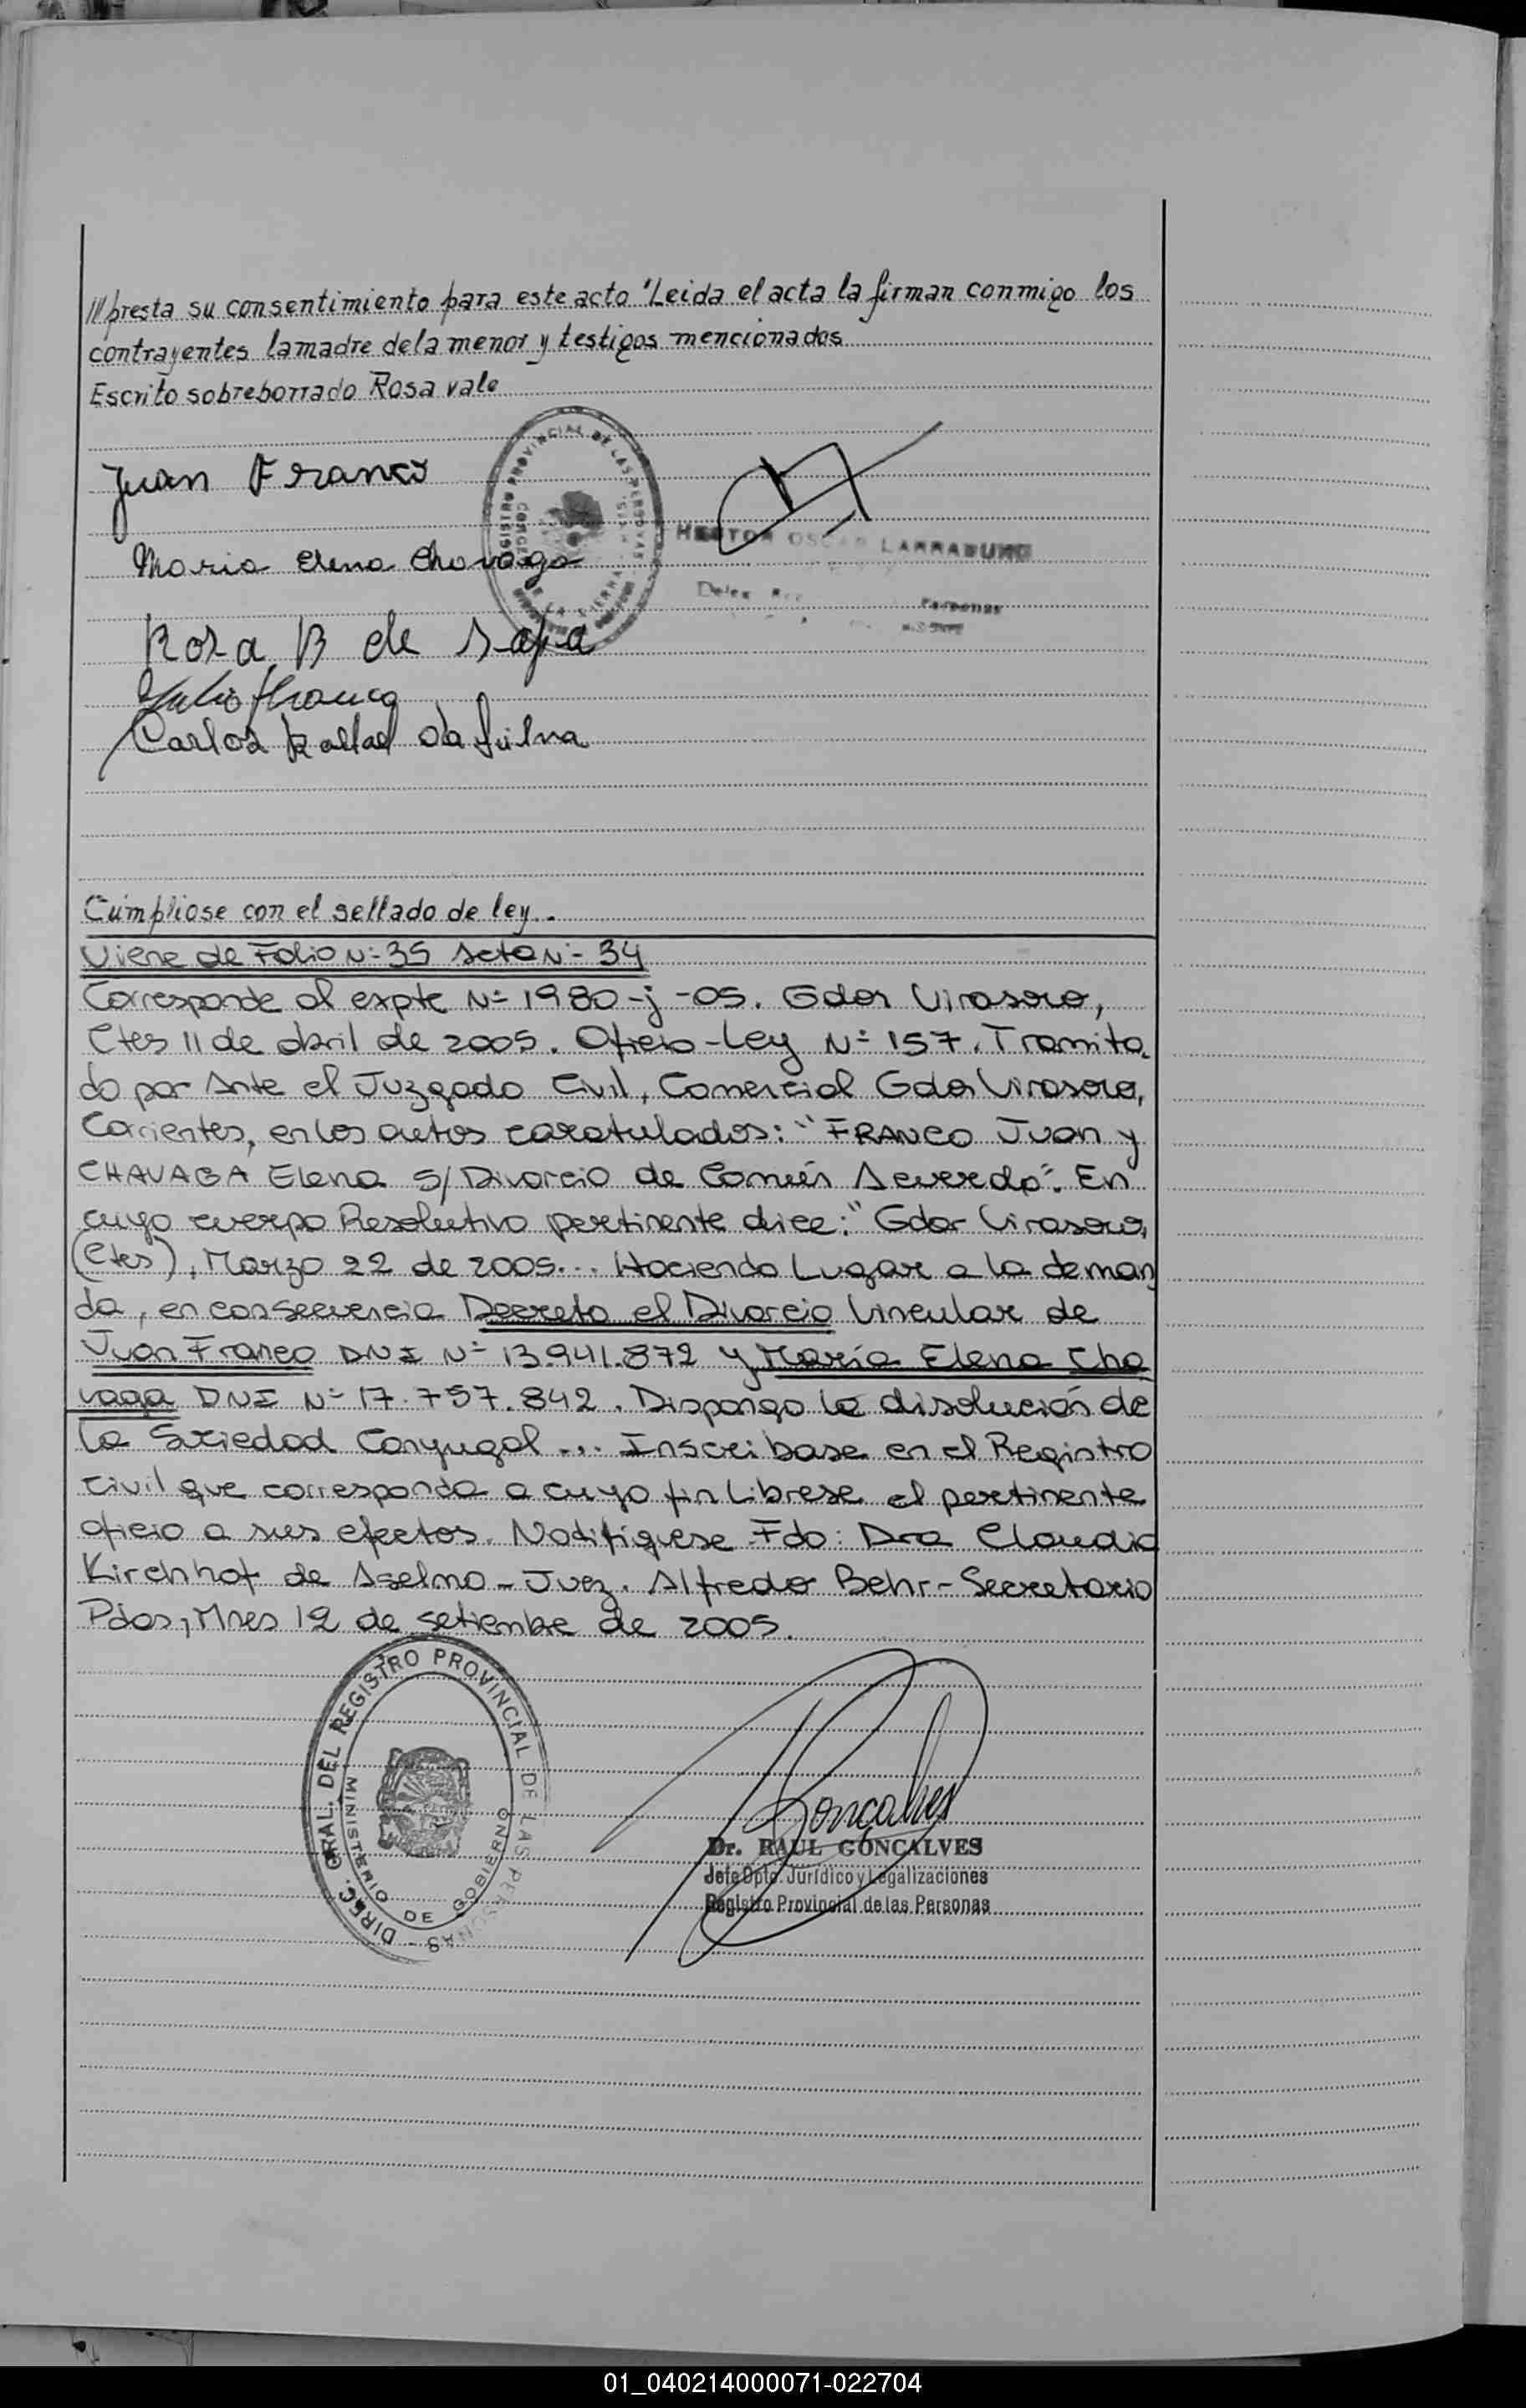 ///presta su consentimiento para este acto "Leida el acta la firman conmigo los
contrayentes la madre de la menor y testigos mencionados
Escrito sobreborrado Rosa vale
Juan Franco
Maria Elena Chavaga
Rosa B de
Julio Franco
Carlos Rafael Da Silva
REGISTRO PROVINCIAL DE LAS PERSONAS
HECTOR OSCAR LARRABURO
Personas
Cúmpliose con el sellado de ley..
Viene de Folio Nº 35 Acta Nº 34
Corresponde al expte Nº 1980-j-05. Gdor Virasoro,
Ctes 11 de abril de 2005. Oficio-Ley Nº 157. Tramita
do por Ante el Juzgado Civil, Comercial Gdor Virasoro,
Corrientes, en los autos caratulados: "FRANCO Juan y
CHAVAGA Elena S/ Divorcio de Común Acuerdo". En
cuyo cuerpo Resolutivo pertinente dice: "Gdor Virasoro,
(Ctes), Marzo 22 de 2005... Haciendo Lugar a la deman
da, en consecuencia Decreto el Divorcio Vincular de
Juan Franco DNI Nº 13.941.872 y María Elena Cha
vaga DNI Nº 17.757.842. Dispongo la disolución de
la Sociedad Conyugal... Inscribase en el Registro
Civil que corresponda a cuyo fin Librese el pertinente
oficio a sus efectos. Notifíquese. Fdo: Dra Claudia
Kirchhof de Aselmo - Juez. Alfredo Behr - Secretario
Pdas, Mnes 12 de setiembre de 2005.
DIREC. GRAL. DEL REGISTRO PROVINCIAL DE LAS PERSONAS
MINISTERIO DE GOBIERNO
Gonçalves
Dr. RAUL GONÇALVES
Jefe Dpto. Jurídico y Legalizaciones
Registro Provincial de las Personas
01_040214000071-022704